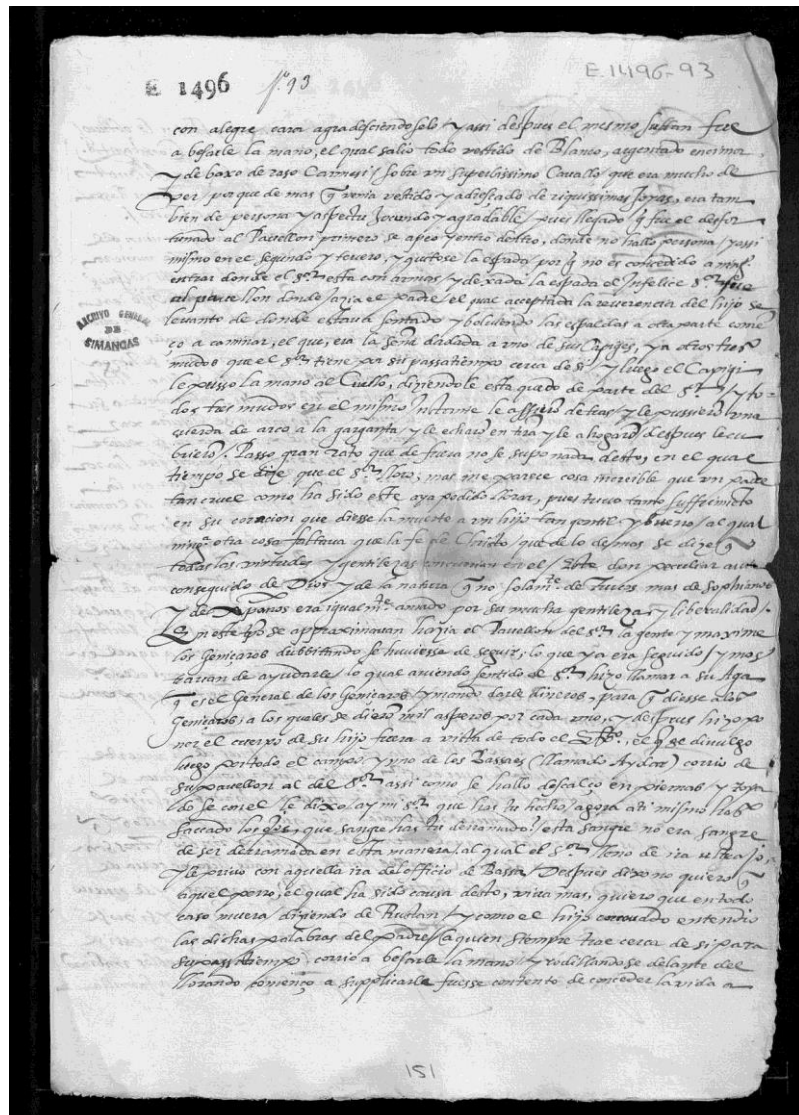 E 1496
fo. 93
E.1496-93
con alegre cara agradesciendoselo / y assi despues el mesmo sultan fue
a besarle la mano, el qual salio todo vestido de Blanco, argentado encima
y de baxo de raso Carmesi sobre un superbissimo Cavallo que era mucho de
ver / por que de mas q venia vestido y adreçado de riquissimas Joyas, era tam
bien de persona y aspectu Jocundo y agradable / pues llegado q fue el desfor
tunado al Pavellon primero se apeo y entro dentro, donde no hallo persona / y assi
mismo en el segundo y tercero, y quitose la espada por q no es concedido a
entrar donde el Sr esta con armas / y dexada la espada el Infelice Sr fue
al pavellon donde el padre / el qual acceptada la reverencia del hijo se
levanto de donde estava sentado y bolviendo las espaldas a otra parte comen
ço a caminar, el que, era la seña dada a uno de sus Capigis, y a otros tres
mudos que el Sr tiene por su passatiempo cerca de si / y luego el Capigi
le pusso la mano al Cuello, diziendole esta quedo de parte del Sr / y to-
dos tres mudos en el mismo Instante le assieron detras / y le pussieron una
cuerda de arco a la garganta / y le echaron en tra y le ahogaron / despues le cu
brieron / Passo gran rato que de fuera no se supo nada desto, en el qual
tiempo se dize que el Sr lloro, mas me parece cosa increible que un padre
tan cruel como ha sido este aya podido llorar, pues tuvo tanto suffrimiento
en su coraçon que diesse la muerte a un hijo tan gentil y bueno / al qual
ninga otra cosa faltava que la fe de Christo / que de lo demas se dize q
todas las virtudes y gentilezas concurrian en el / Este don peculiar avia
conseguido de Dios y de la natura q no solamte de Turcos mas de Sophianos
y de xpanos era igualmte amado por su mucha gentileza y liberalidad /
En este tpo se approximavan hazia el Pavellon del Sr la gente y maxime
los Geniçaros dubbitando se huviesse de seguir, lo que ya era seguido / y mos
travan de ayudarle / lo qual aviendo sentido el Sr hizo llamar a su Aga
q es el General de los Geniçaros / y mando darle dineros, para q diesse a los
Geniçaros, a los quales se dieron mil asperos por cada uno, y despues hizo po
ner el cuerpo de su hijo fuera a vista de todo el , el q se divulgo
luego por todo el campo / y uno de los Bassaes (llamado Aydar) corrio de
su pavellon al del Sr assi como se hallo descalço en piernas /
 con el / le dixo / ay mi Sr que has tu hecho / agora a ti mismo has
saccado los ojos, que sangre has tu derramado? / esta sangre no era sangre
de ser derramada en esta manera / al qual el Sr lleno de ira ultrajo,
y le privo con aquella ira del officio de Bassa / Despues dixo no quiero q
aquel perro, el qual ha sido causa desto, viva mas, quiero que en todo
caso muera / diziendo de Rustan / y como el hijo corcovado entendio
las dichas palabras del padre / a quien siempre trae cerca de si para
su passatiempo, corrio a besarle la mano / y rodillandose delante del
llorando començo a supplicarle fuesse contento de conceder la vida a
ARCHIVO GENERAL
DE
SIMANCAS
151